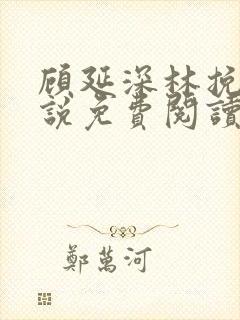 顾延深林挽
說免費閱讀
鄭萬河